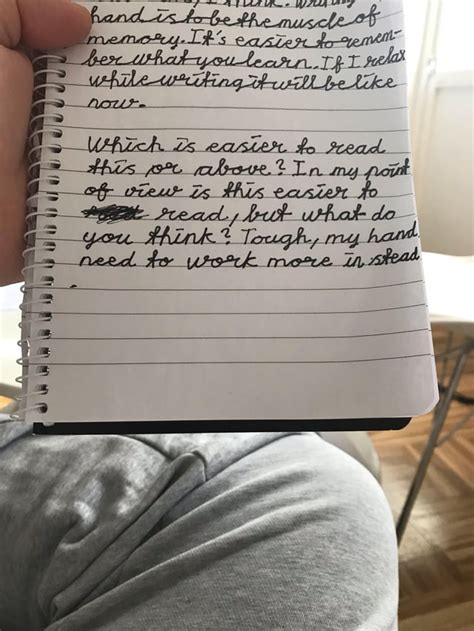 I think. Writing
hand is to be the muscle of
memory. It's easier to remem-
ber what you learn. If I relax
while writing it will be like
now.
Which is easier to read
this or above? In my point
of view is this easier to
read, but what do
you think? Tough, my hand
need to work more in stead
.